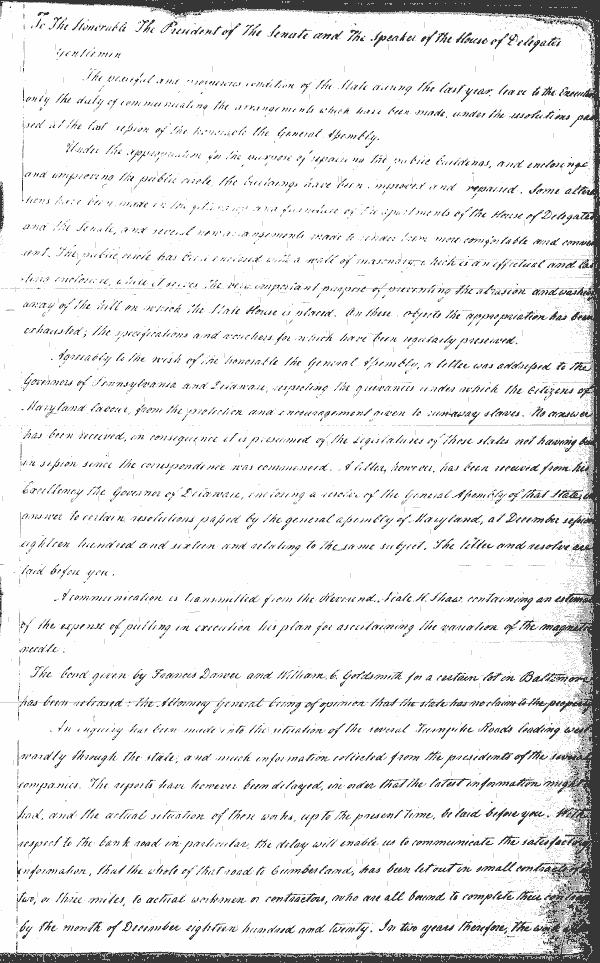 To The Honorable The President of The Senate and The Speaker of the House of Delegates
Gentlemen
The peaceful and prosperous condition of the State during the last year, leave to the Executive
only the duty of communicating the arrangements which have been made, under the resolutions pas
sed at the last session of the honorable the General Assembly.
Under the appropriation for the purpose of repairing the public buildings, and enclosing
and improving the public circle, the buildings have been improved and repaired. Some altera
tions have been made in the and furniture of the apartments of the House of Delegates
and the Senate, and several new arrangements made to render them more comfortable and conveni
ent. The public circle has been enclosed with a wall of masonry which is an effectual and las
ting enclosure, while it serves the very important purpose of preventing the abrasion and washing
away of the hill on which the State House is placed. On these objects the appropriation has been
exhausted; the specifications and vouchers for which have been regularly preserved.
Agreeably to the wish of the honorable the General Assembly, a letter was addressed to the
Governors of Pennsylvania and Delaware, respecting the grievances under which the Citizens of
Maryland labour, from the protection and encouragement given to run-away slaves. No answer
has been received, in consequence it is presumed of the Legislatures of those states not having been
in session since the correspondence was commenced. A letter, however, has been received from his
Excellency the Governor of Delaware, enclosing a resolve of the General Assembly of that State, in
answer to certain resolutions passed by the general assembly of Maryland, at December session
eighteen hundred and sixteen and relating to the same subject. The letter and resolve are
laid before you.
A communication is transmitted from the Reverend Neale H. Shaw, containing an estimate
of the expense of putting in execution his plan for ascertaining the variation of the magnetic
needle.
The bond given by Francis Dawes and William G. Goldsmith for a certain lot in Baltimore
has been released: the Attorney General being of opinion that the state has no claim to the property
An inquiry has been made into the situation of the several Turnpike Roads leading west
wardly through the state, and much information collected from the presidents of the several
companies. The reports have however been delayed, in order that the latest information might
had, and the actual situation of those works, up to the present time, be laid before you. With
respect to the bank road in particular, the delay will enable us to communicate the satisfactory
information, that the whole of that road to Cumberland, has been let out in small contracts of
two, or three miles, to actual workmen or contractors, who are all bound to complete their contracts
by the month of December eighteen hundred and twenty. In two years therefore, the